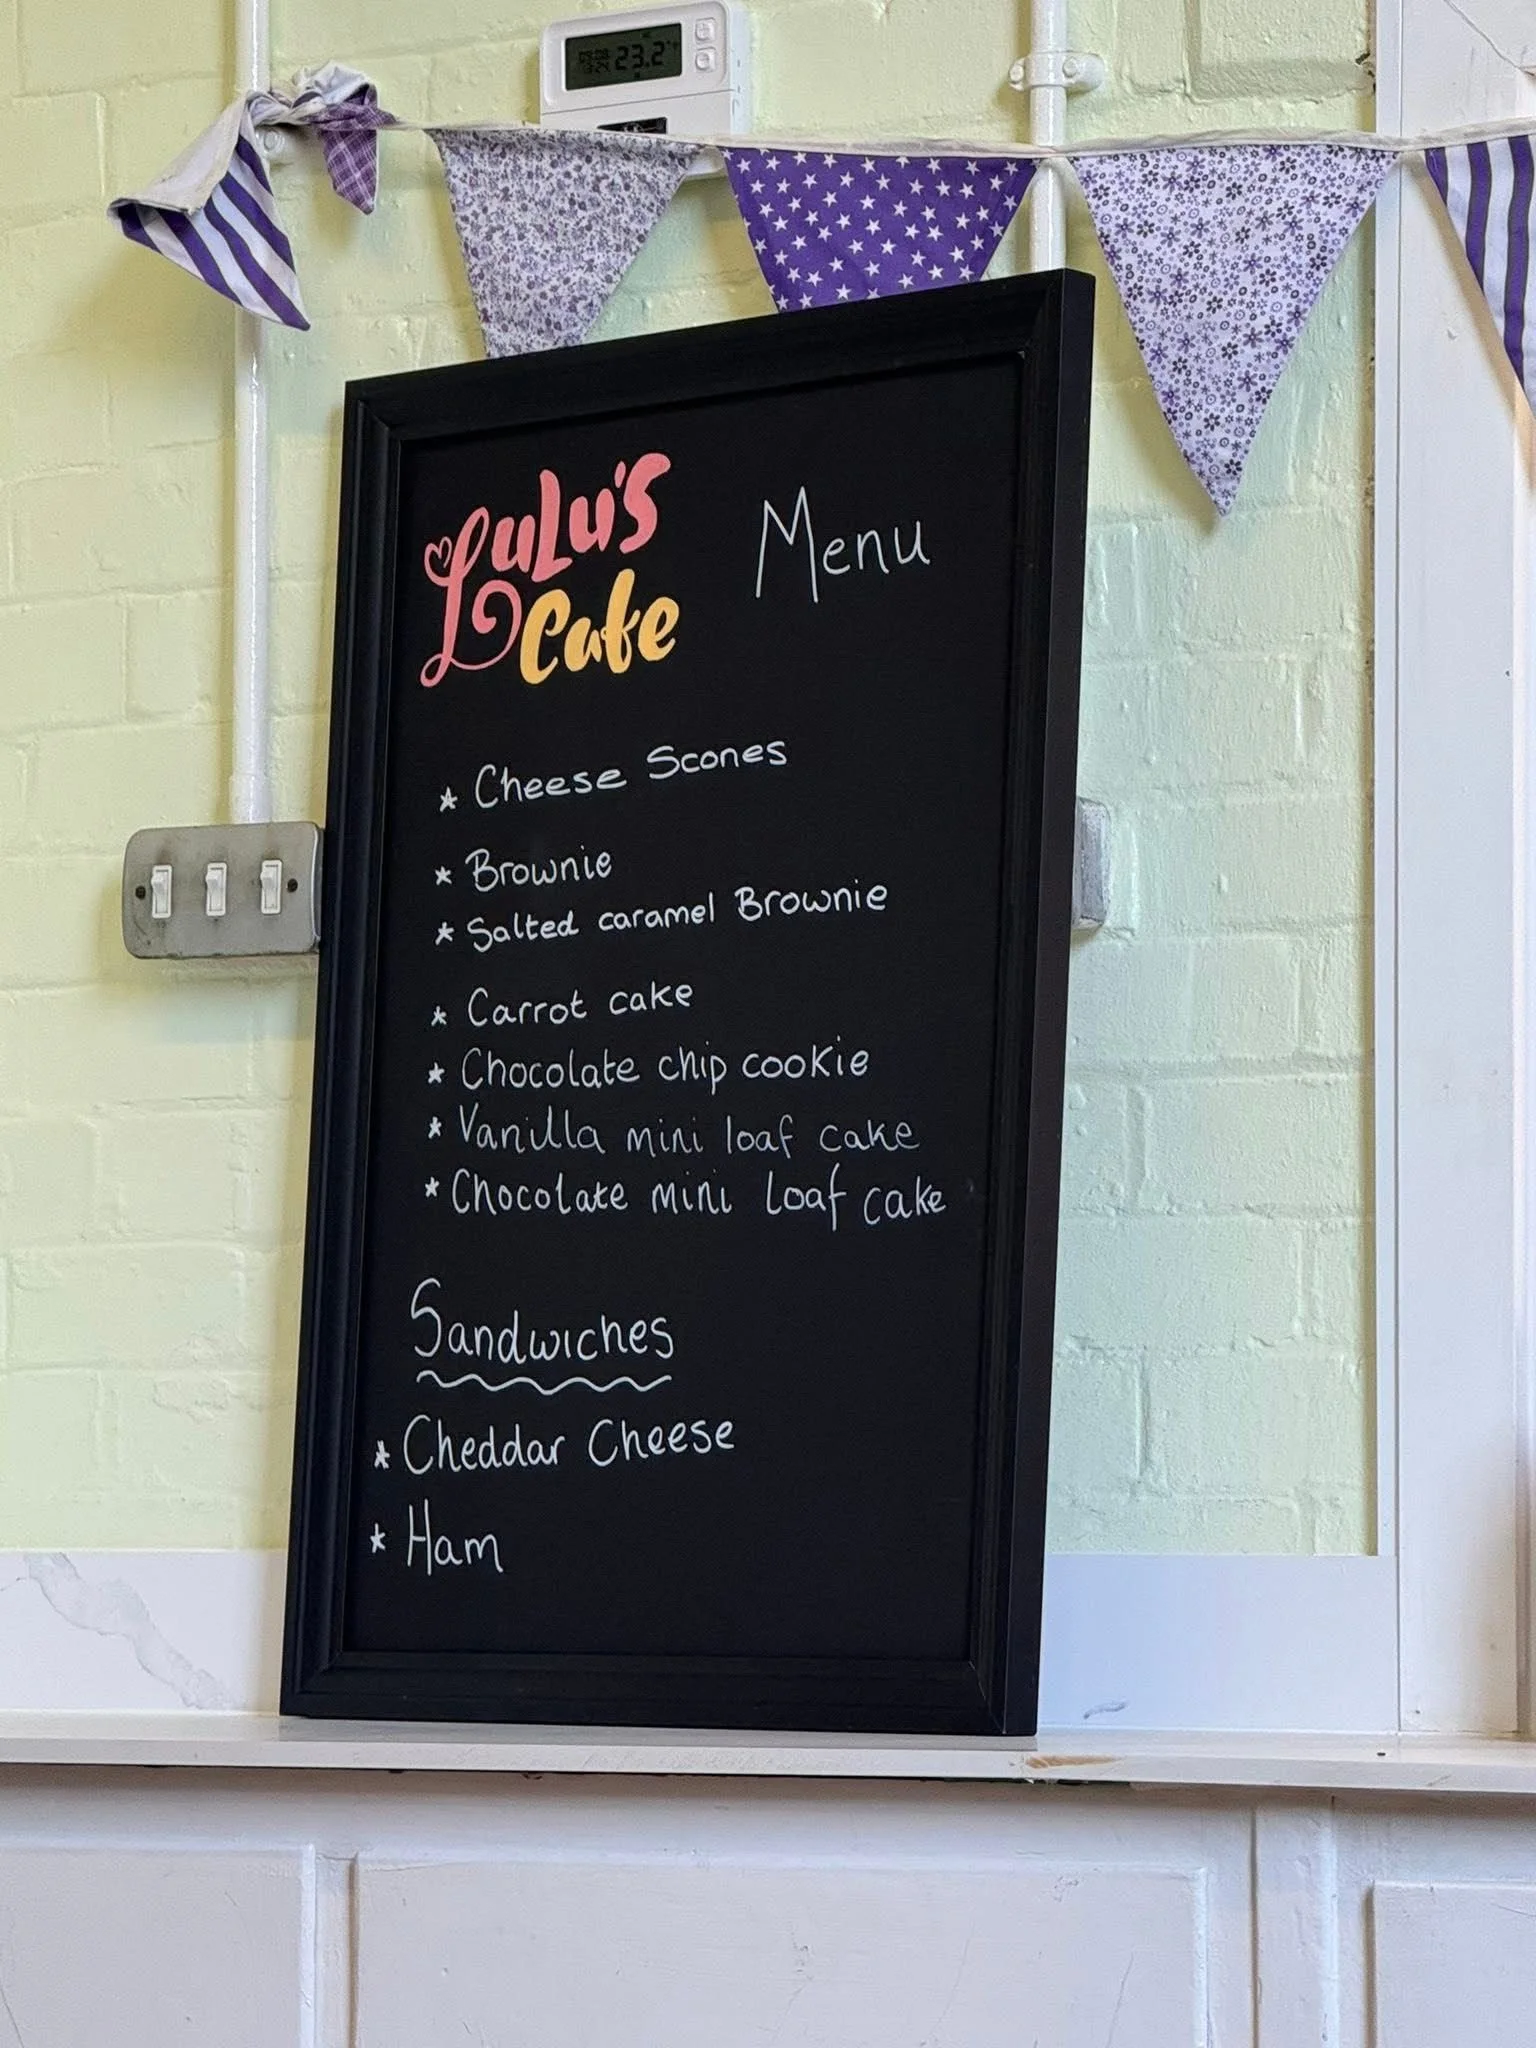 23.2
Lulu's
Cafe
Menu
* Cheese Scones
* Brownie
* Salted caramel Brownie
* Carrot cake
* Chocolate chip cookie
* Vanilla mini loaf cake
* Chocolate mini loaf cake
Sandwiches
* Cheddar Cheese
* Ham